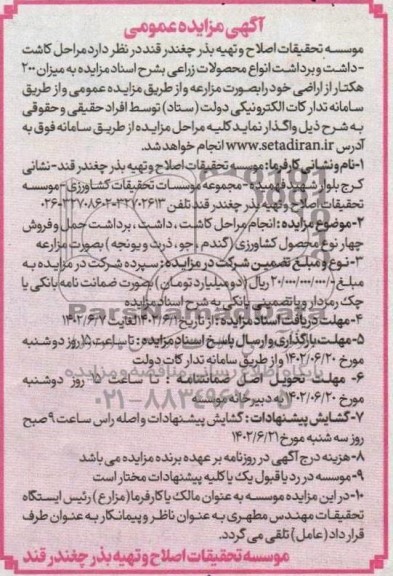 آگهی مزایده عمومی
موسسه تحقیقات اصلاح و تهیه بذر چغندر قند در نظر دارد مراحل کاشت
-داشت و برداشت انواع محصولات زراعی بشرح اسناد مزایده به میزان ۲۰۰
هکتار از اراضی خود را بصورت مزارعه و از طریق مزایده عمومی و از طریق
سامانه تدارکات الکترونیکی دولت (ستاد) توسط افراد حقیقی و حقوقی
به شرح ذیل واگذار نماید کلیه مراحل مزایده از طریق سامانه فوق به
آدرس www.setadiran.ir انجام خواهد شد.
۱-نام و نشانی کارفرما: موسسه تحقیقات اصلاح و تهیه بذر چغندر قند-نشانی
کرج بلوار شهید فهمیده - مجموعه موسسات تحقیقات کشاورزی-موسسه
تحقیقات اصلاح و تهیه بذر چغندر قند تلفن
۲-موضوع مزایده : انجام مراحل کاشت ، داشت ، برداشت حمل و فروش
چهار نوع محصول کشاورزی (گندم ، جو ، ذرت و یونجه ) بصورت مزارعه
۳-نوع و مبلغ تضمین شرکت در مزایده : سپرده شرکت در مزایده به
مبلغ ۲۰/۰۰۰/۰۰۰/۰۰۰/- ریال (دو میلیارد تومان ) بصورت ضمانت نامه بانکی یا
چک رمزدار و یا تضمینی بانکی به شرح اسناد مزایده
۴-مهلت دریافت اسناد مزایده : از تاریخ ۱۴۰۲/۶/۱ لغایت ۱۴۰۲/۶/۷
۵-مهلت بارگذاری و ارسال پاسخ اسناد مزایده : تا ساعت ۱۵ روز دوشنبه
مورخ ۱۴۰۲/۰۶/۲۰ و از طریق سامانه تدارکات دولت
۶- مهلت تحویل اصل ضمانتنامه : تا ساعت ۱۵ روز دوشنبه
مورخ ۱۴۰۲/۰۶/۲۰ به دبیرخانه موسسه
۷-گشایش پیشنهادات : گشایش پیشنهادات واصله راس ساعت ۹ صبح
روز سه شنبه مورخ ۱۴۰۲/۶/۲۱
۸-هزینه درج آگهی در روزنامه بر عهده برنده مزایده می باشد
۹-موسسه در رد یا قبول یک یا کلیه پیشنهادات مختار است
۱۰-در این مزایده موسسه به عنوان مالک یا کارفرما (مزارع ) رئیس ایستگاه
تحقیقات مهندس مطهری به عنوان ناظر و پیمانکار به عنوان طرف
قرارداد (عامل) تلقی می گردد.
موسسه تحقیقات اصلاح و تهیه بذر چغندر قند
ParsNamadData
پایگاه اطلاع رسانی مناقصه و مزایده